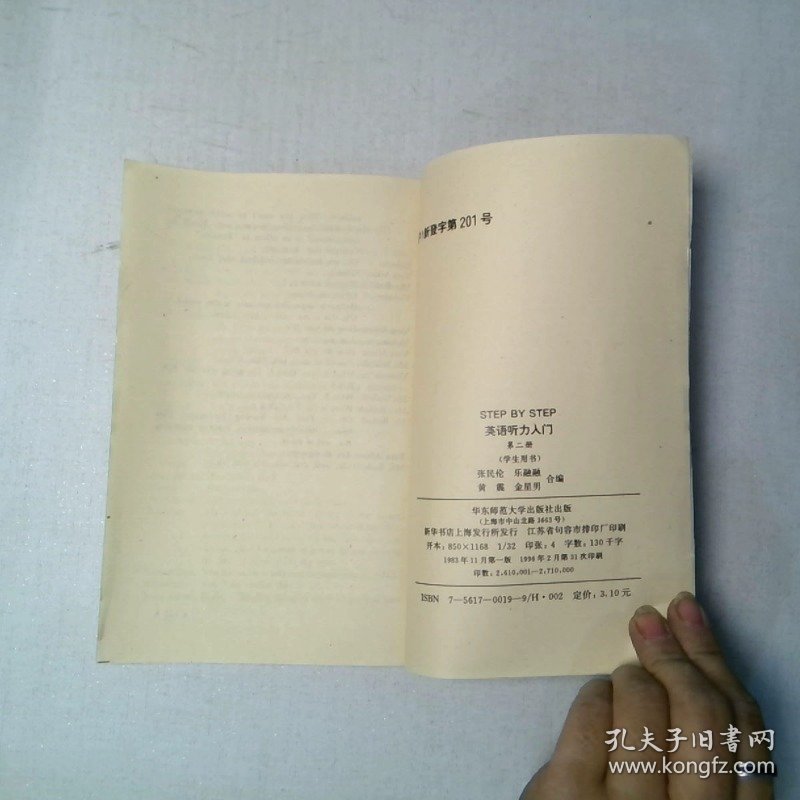 新登字第201号
STEP BY STEP
英语听力入门
第二册
(学生用书)
张民伦 乐融融
黄震 金星男 合编
华东师范大学出版社出版
(上海市中山北路3663号)
新华书店上海发行所发行 江苏省句容市排印厂印刷
开本:850×1168 1/32 印张:4 字数:130千字
1983年11月第一版 1996年2月第31次印刷
印数:2.610.001—2.710.000
ISBN 7—5617—0019—9/H·002 定价:3.10元
孔夫子旧书网
www.kongfz.com